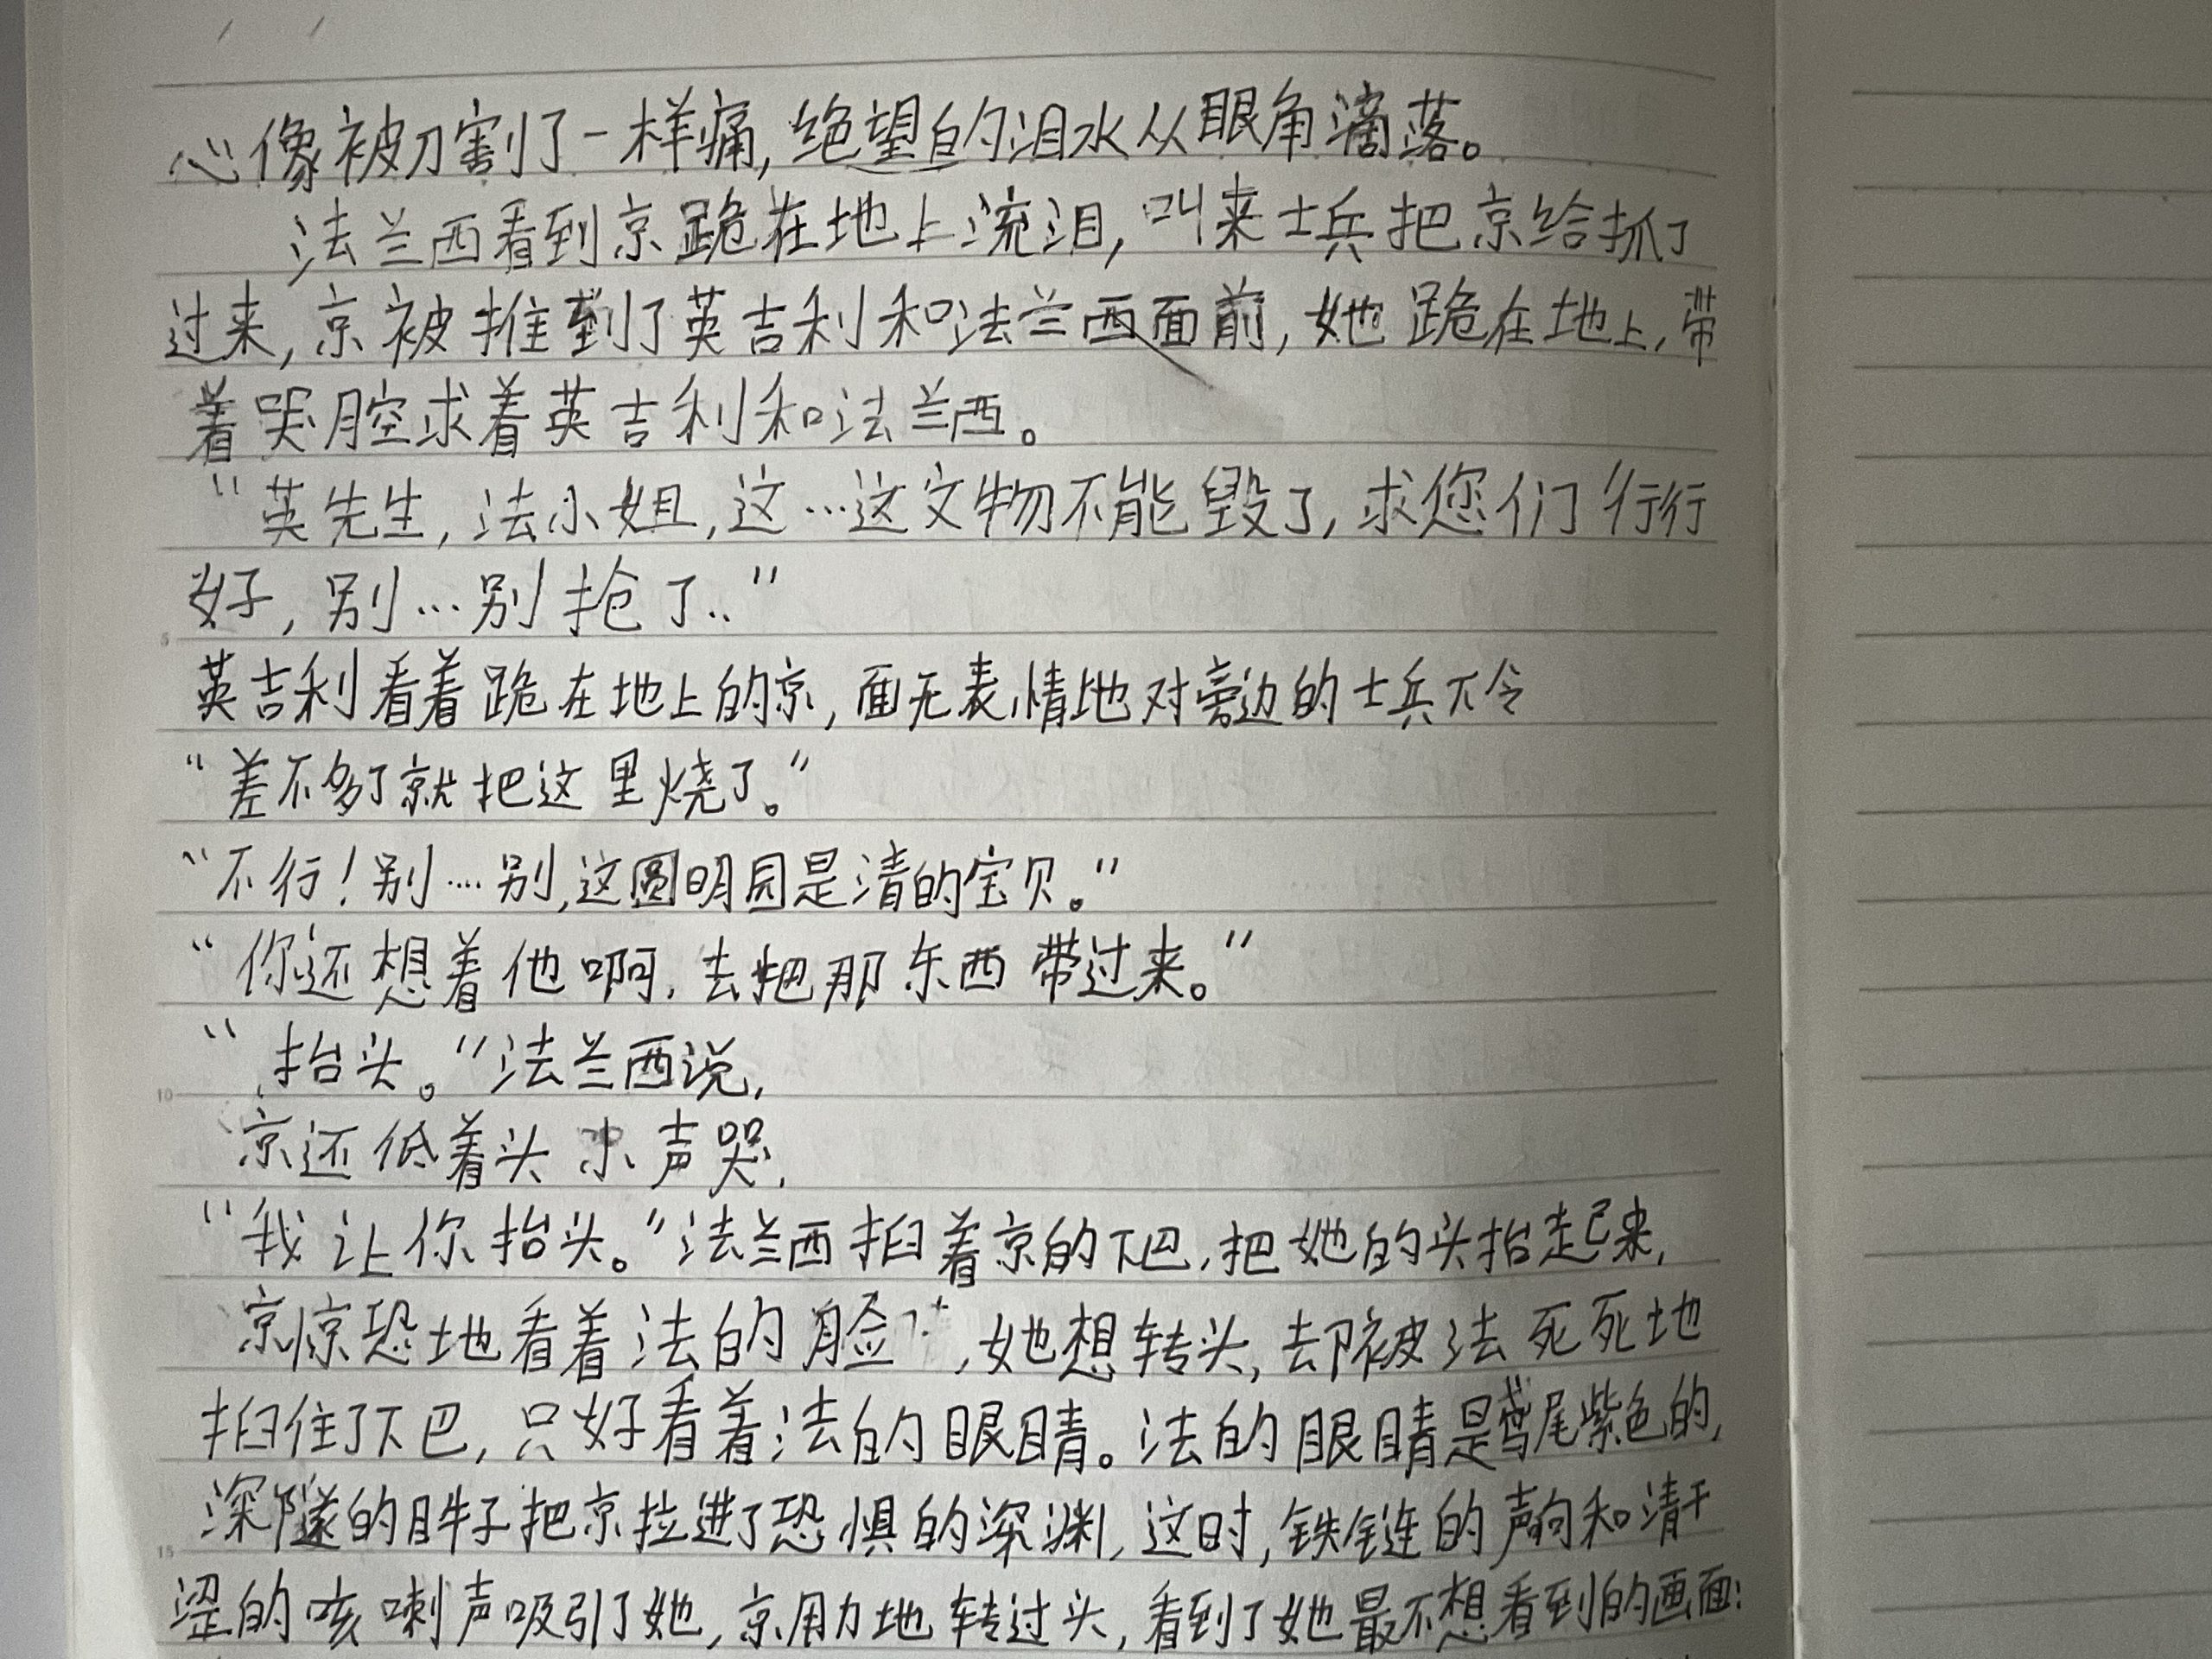 心像被刀割了一样痛,绝望的泪水从眼角滴落。
法兰西看到京跪在地上流泪,叫来士兵把京给抓了
过来,京被推到了英吉利和法兰西面前,她跪在地上,带
着哭腔求着英吉利和法兰西。
“英先生,法小姐,这…这文物不能毁了,求您们行行
好,别…别抢了..”
英吉利看着跪在地上的京,面无表情地对旁边的士兵下令
“差不多了就把这里烧了。”
“不行!别…别,这圆明园是清的宝贝。”
“你还想着他啊,去把那东西带过来。”
“抬头。”法兰西说,
京还低着头小声哭,
“我让你抬头。”法兰西掐着京的下巴,把她的头抬起来,
京惊恐地看着法的脸,她想转头,却被法死死地
掐住了下巴,只好看着法的眼睛。法的眼睛是鸢尾紫色的,
深隧的眸子把京拉进了恐惧的深渊,这时,铁链的声响和清干
涩的咳嗽声吸引了她,京用力地转过头,看到了她最不想看到的画面: